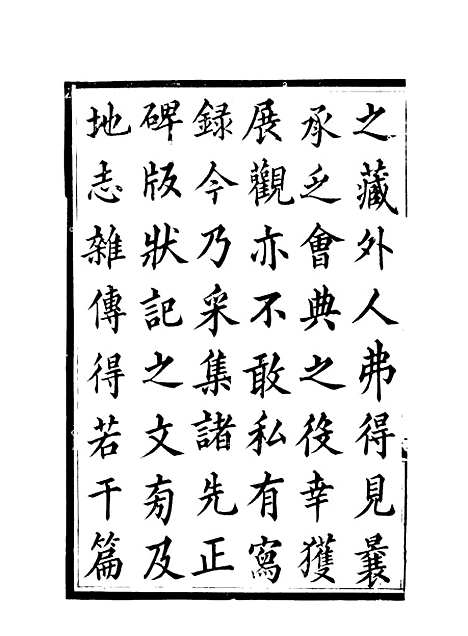 之藏外人弗得見曩
承乏會典之役幸獲
展觀亦不敢私有寫
錄今乃采集諸先正
碑版狀記之文旁及
地志雜傳得若干篇